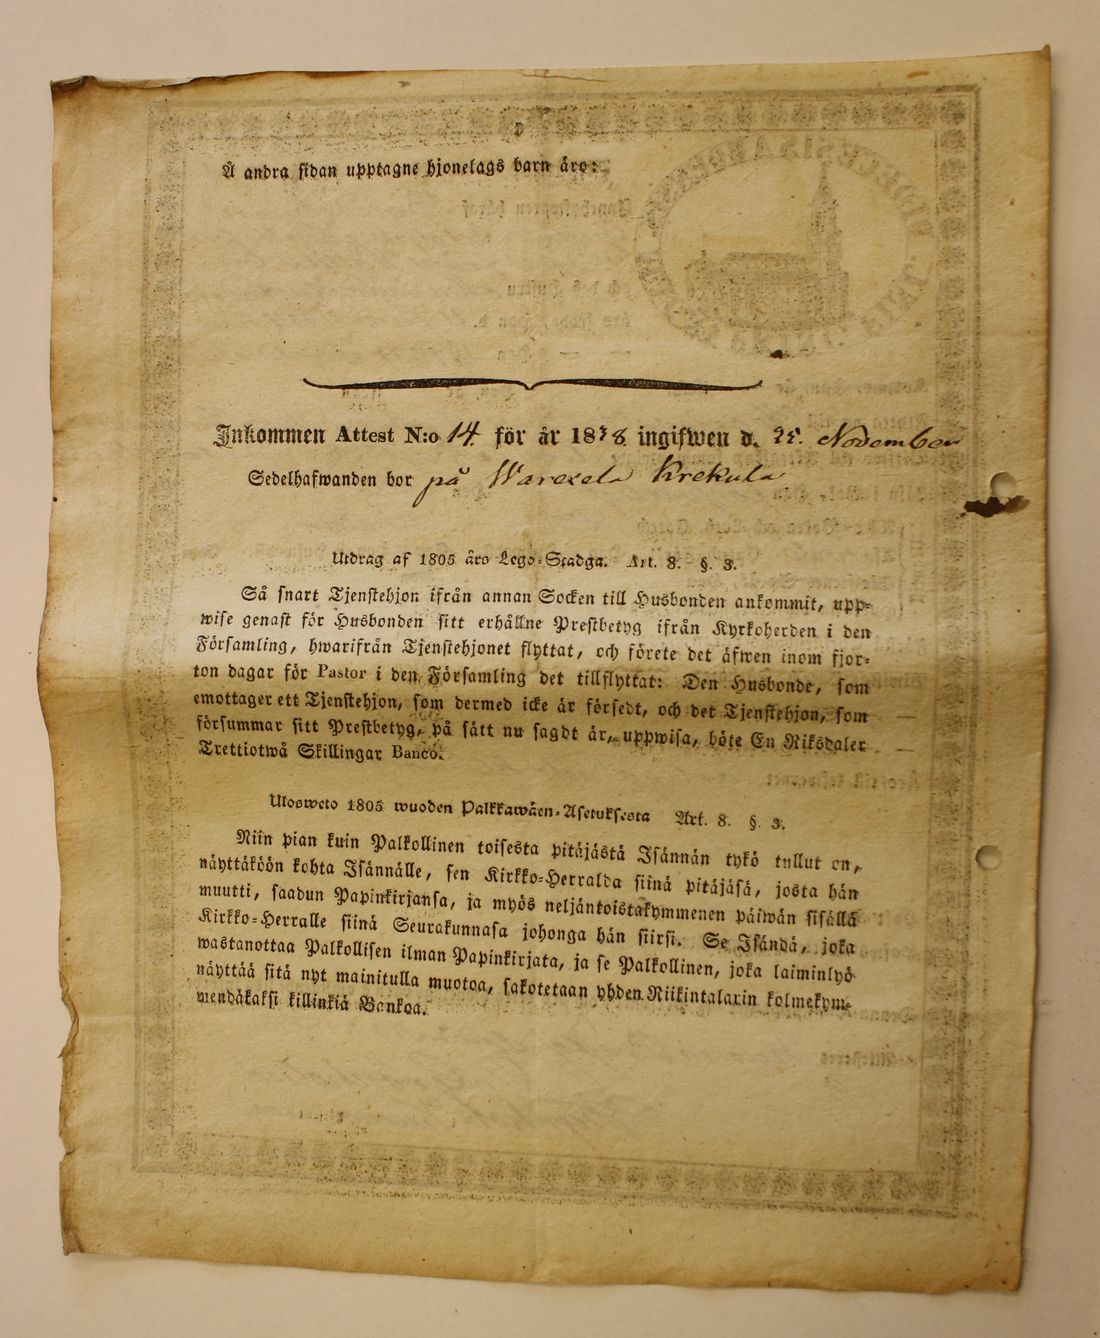 Å andra sidan upptagne hjonelags barn äro:
Inkommen Attest N:o 14. för år 1838. ingifwen d. 25. November
Sedelhafwanden bor på Warexela Krekula
Utdrag af 1805 års Lego-Stadga. Art. 8. §. 3.
Så snart Tjenstehjon ifrån annan Socken till Husbonden ankommit, upp=
wise genast för Husbonden sitt erhållne Prestbetyg ifrån Kyrkoherden i den
Församling, hwarifrån Tjenstehjonet flyttat, och förete det äfwen inom fjor=
ton dagar för Pastor i den Församling det tillflyttat: Den Husbonde, som
emottager ett Tjenstehjon, som dermed icke är försedt, och det Tjenstehjon, som
försummar sitt Prestbetyg, på sätt nu sagdt är, uppwisa, böte En Riksdaler
Trettiotwå Skillingar Banco.
Ulosweto 1805 wuoden Palkkawäen-Asetuksesta Art. 8. §. 3.
Niin pian kuin Palkollinen toisesta pitäjästä Isännän tykö tullut on,
näyttäköön kohta Isännälle, sen Kirkko-Herralda siinä pitäjäsä, josta hän
muutti, saadun Papinkirjansa, ja myös neljäntoistakymmenen päiwän sisällä
Kirkko-Herralle siinä Seurakunnasa johonga hän siirsi. Se Isändä, joka
wastanottaa Palkollisen ilman Papinkirjata, ja se Palkollinen, joka laiminlyö
näyttää sitä nyt mainitulla muotoa, sakotetaan yhden Riikintalarin kolmekym=
mendäkaksi killinkiä Bankoa.